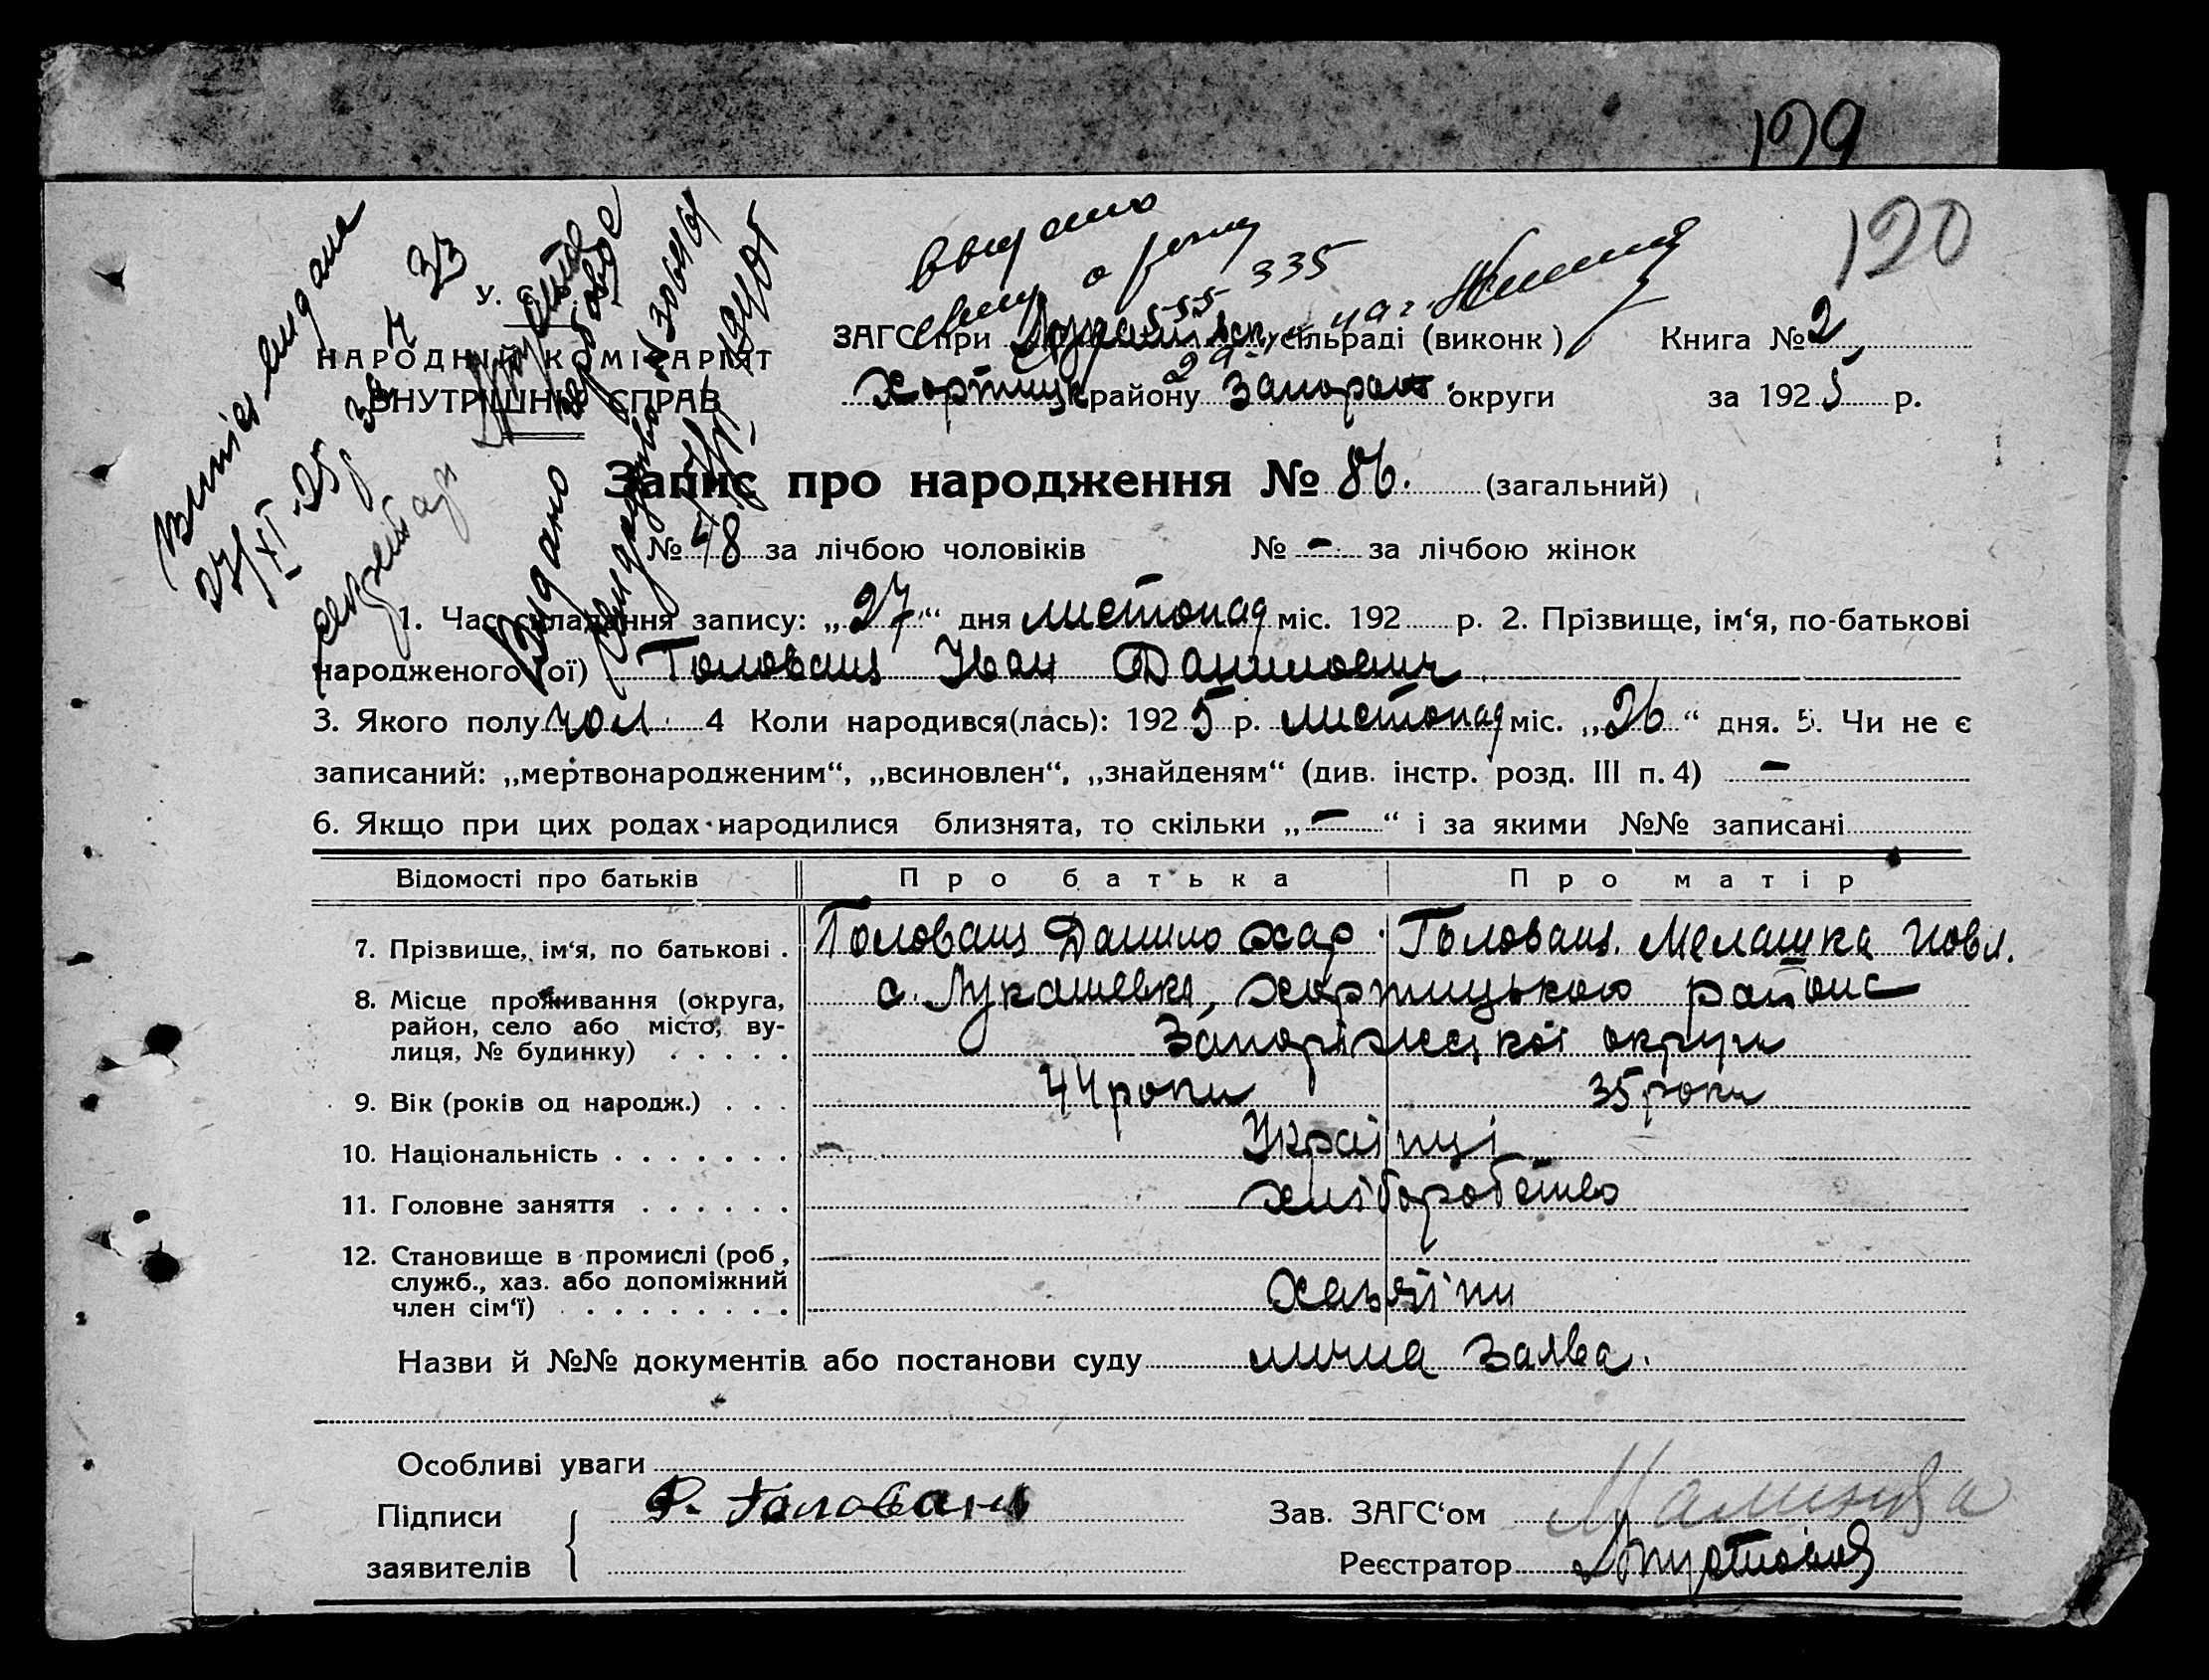 129
120
видано
335
У.
НАРОДНІЙ КОМІСАРІЯТ
ВНУТРІШНІХ СПРАВ
ЗАГС при сільраді (виконк) Книга № 2
Хортиц району Запорож округи за 1925 р.
Запис про народження № 86. (загальний)
№ 48 за лічбою чоловіків № - за лічбою жінок
1. Час складання запису: „27“ дня листопад міс. 192 р. 2. Прізвище, ім‘я, по-батькові
народженого (ої) Головаш Іван Данилович
3. Якого полу чол. 4 Коли народився(лась): 1925 р. листопад міс. „26“ дня. 5. Чи не є
записаний: „мертвонародженим“, „всиновлен“, „знайденям“ (див. інстр. розд. III п. 4) -
6. Якщо при цих родах народилися близнята, то скільки „-“ і за якими №№ записані
Відомості про батьків Про батька Про матір
7. Прізвище, ім‘я, по батькові . Головаш Данило Хар. Головаш Мелашка
8. Місце проживання (округа, с. Лукашевка, Хортицького району
район, село або місто, ву- Запоріжської округи
лиця, № будинку) . . . . .
9. Вік (років од народж.) . . . 44 роки 35 роки
10. Національність . . . . . . . Українці
11. Головне заняття . . . . . . хліборобство
12. Становище в промислі (роб,
служб., хаз. або допоміжний хазяїни
член сім‘ї) . . . . . . . . .
Назви й №№ документів або постанови суду лична заява.
Особливі уваги
Підписи Головаш Зав. ЗАГС‘ом
заявителів Реєстратор
Видано